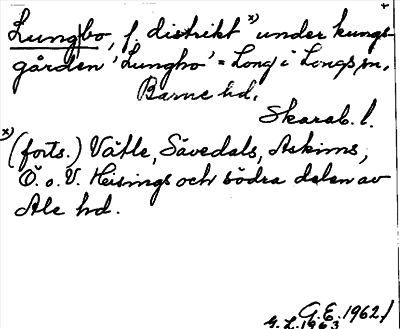 Lungbo, f. distrikt x) under kungs-
gården 'Lungho' = Long i Longs sn,
Barne hd,
Skarab. l.
x) (forts.) Vätle, Sävedals, Askims,
Ö. o. V. Hisings och södra delen av
Ale hd.
G.E. 1962/
G.L. 1963